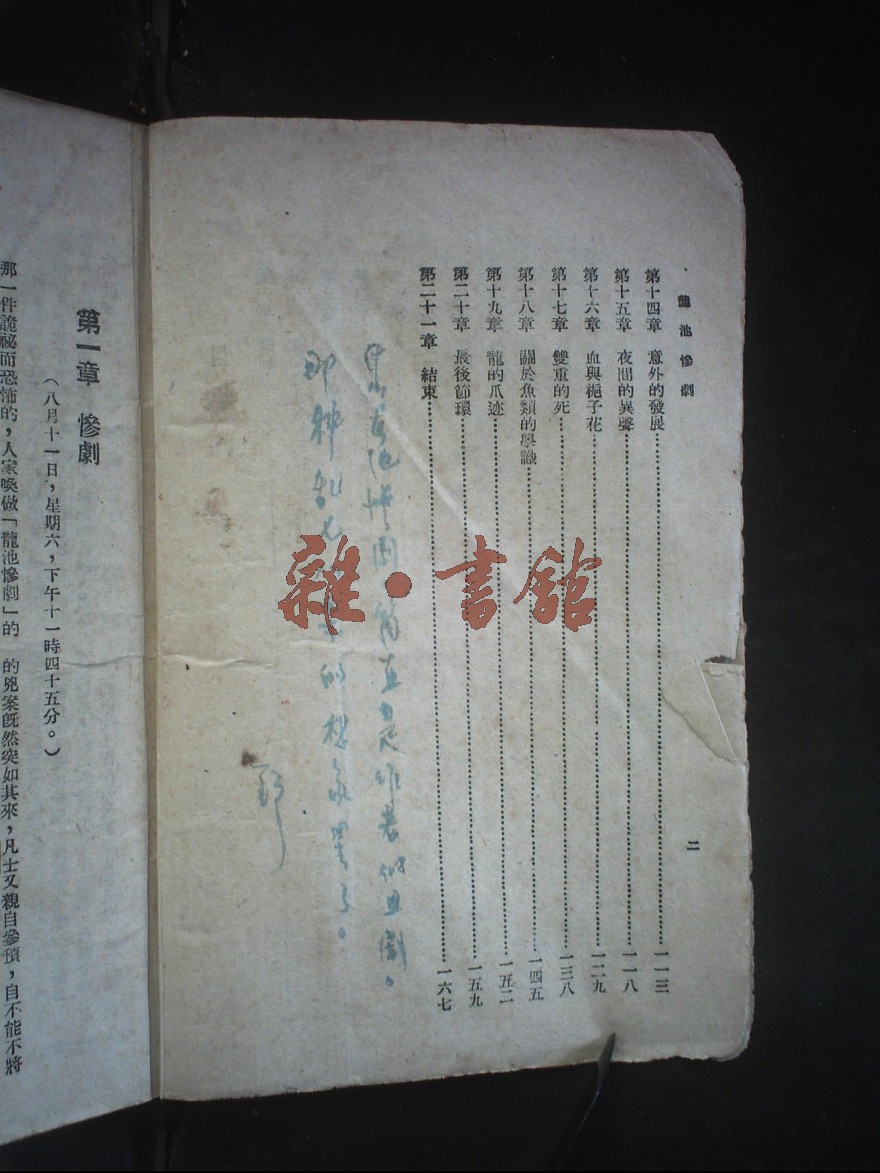 龍池慘劇
二
第十四章 意外的發展……一一三
第十五章 夜間的異聲……一一八
第十六章 血與梔子花……一二九
第十七章 雙重的死……一三八
第十八章 關於魚類的學識……一四五
第十九章 龍的爪迹……一五二
第二十章 最後節環……一五九
第二十一章 結束……一六七
簡直是作者
的想象罷了。
雜·書館
第一章 慘劇
(八月十一日,星期六,下午十一時四十五分。)
那一件詭祕而恐怖的,人家喚做「龍池慘劇」的 的兇案既然突如其來,凡士又親自參預,自不能不將